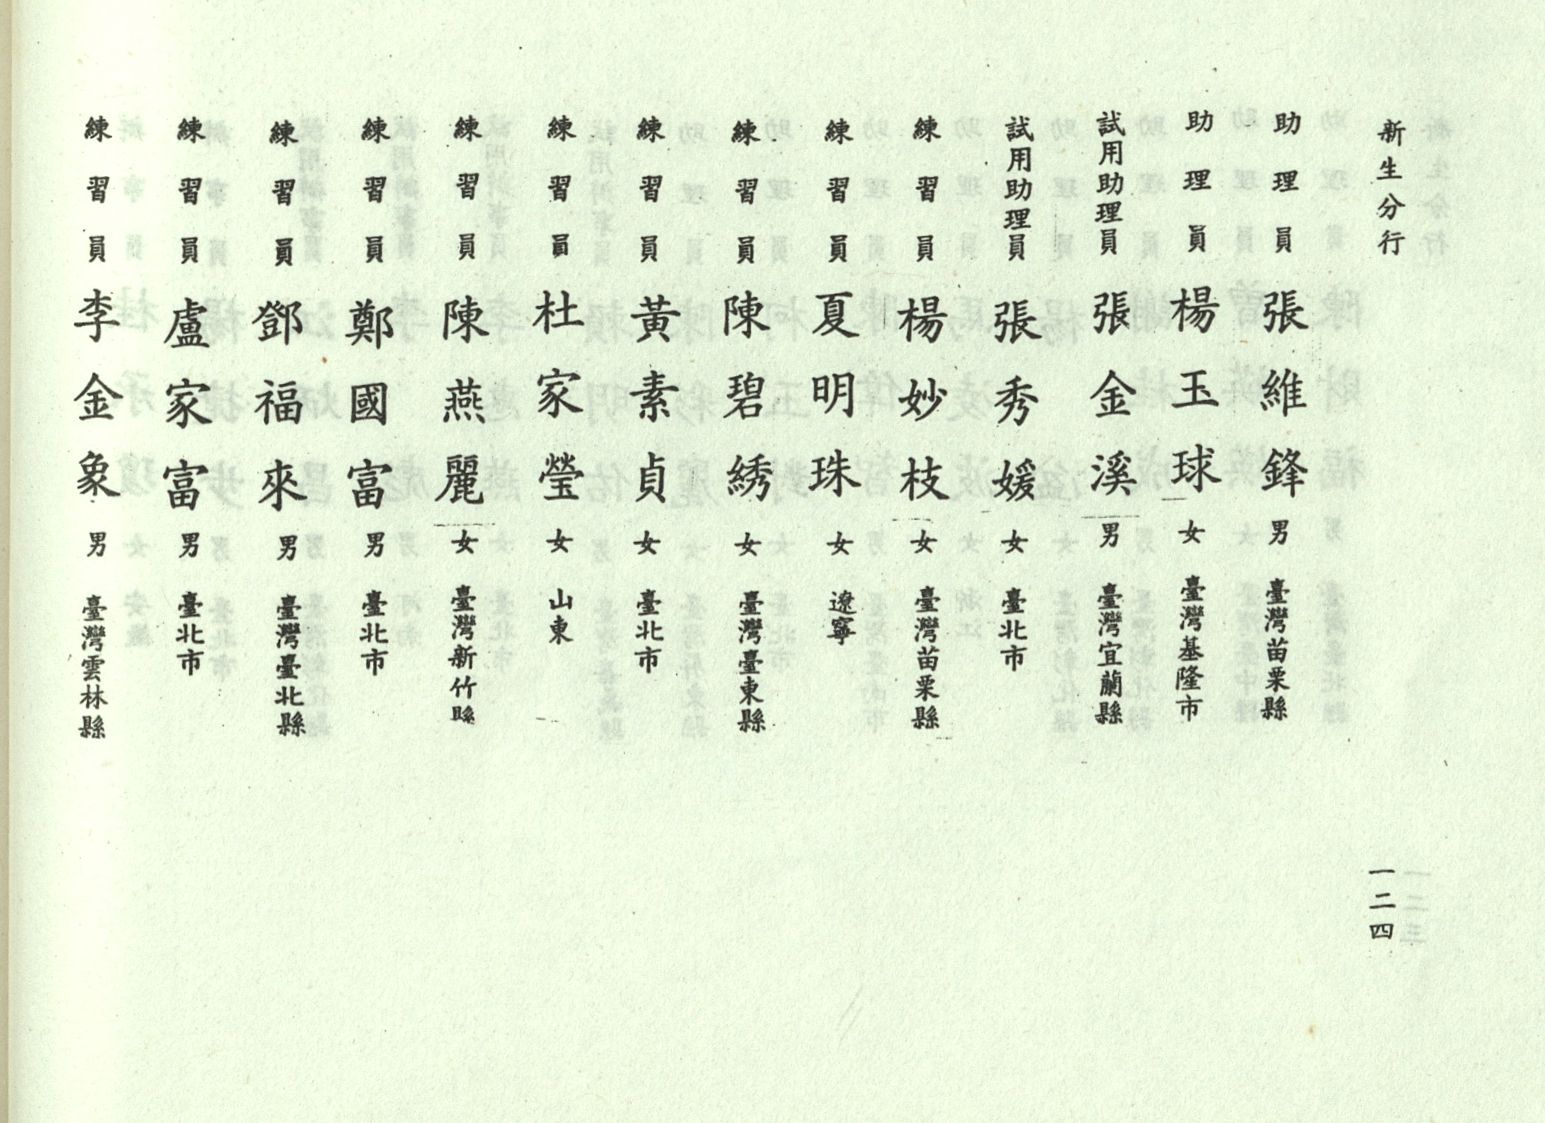 新生分行
助理員 張維鋒 男 臺灣苗栗縣
助理員 楊玉球 女 臺灣基隆市
試用助理員 張金溪 男 臺灣宜蘭縣
試用助理員 張秀媛 女 臺北市
練習員 楊妙枝 女 臺灣苗栗縣
練習員 夏明珠 女 遼寧
練習員 陳碧綉 女 臺灣臺東縣
練習員 黃素貞 女 臺北市
練習員 杜家瑩 女 山東
練習員 陳燕麗 女 臺灣新竹縣
練習員 鄭國富 男 臺北市
練習員 鄧福來 男 臺灣臺北縣
練習員 盧家富 男 臺北市
練習員 李金象 男 臺灣雲林縣
一二四